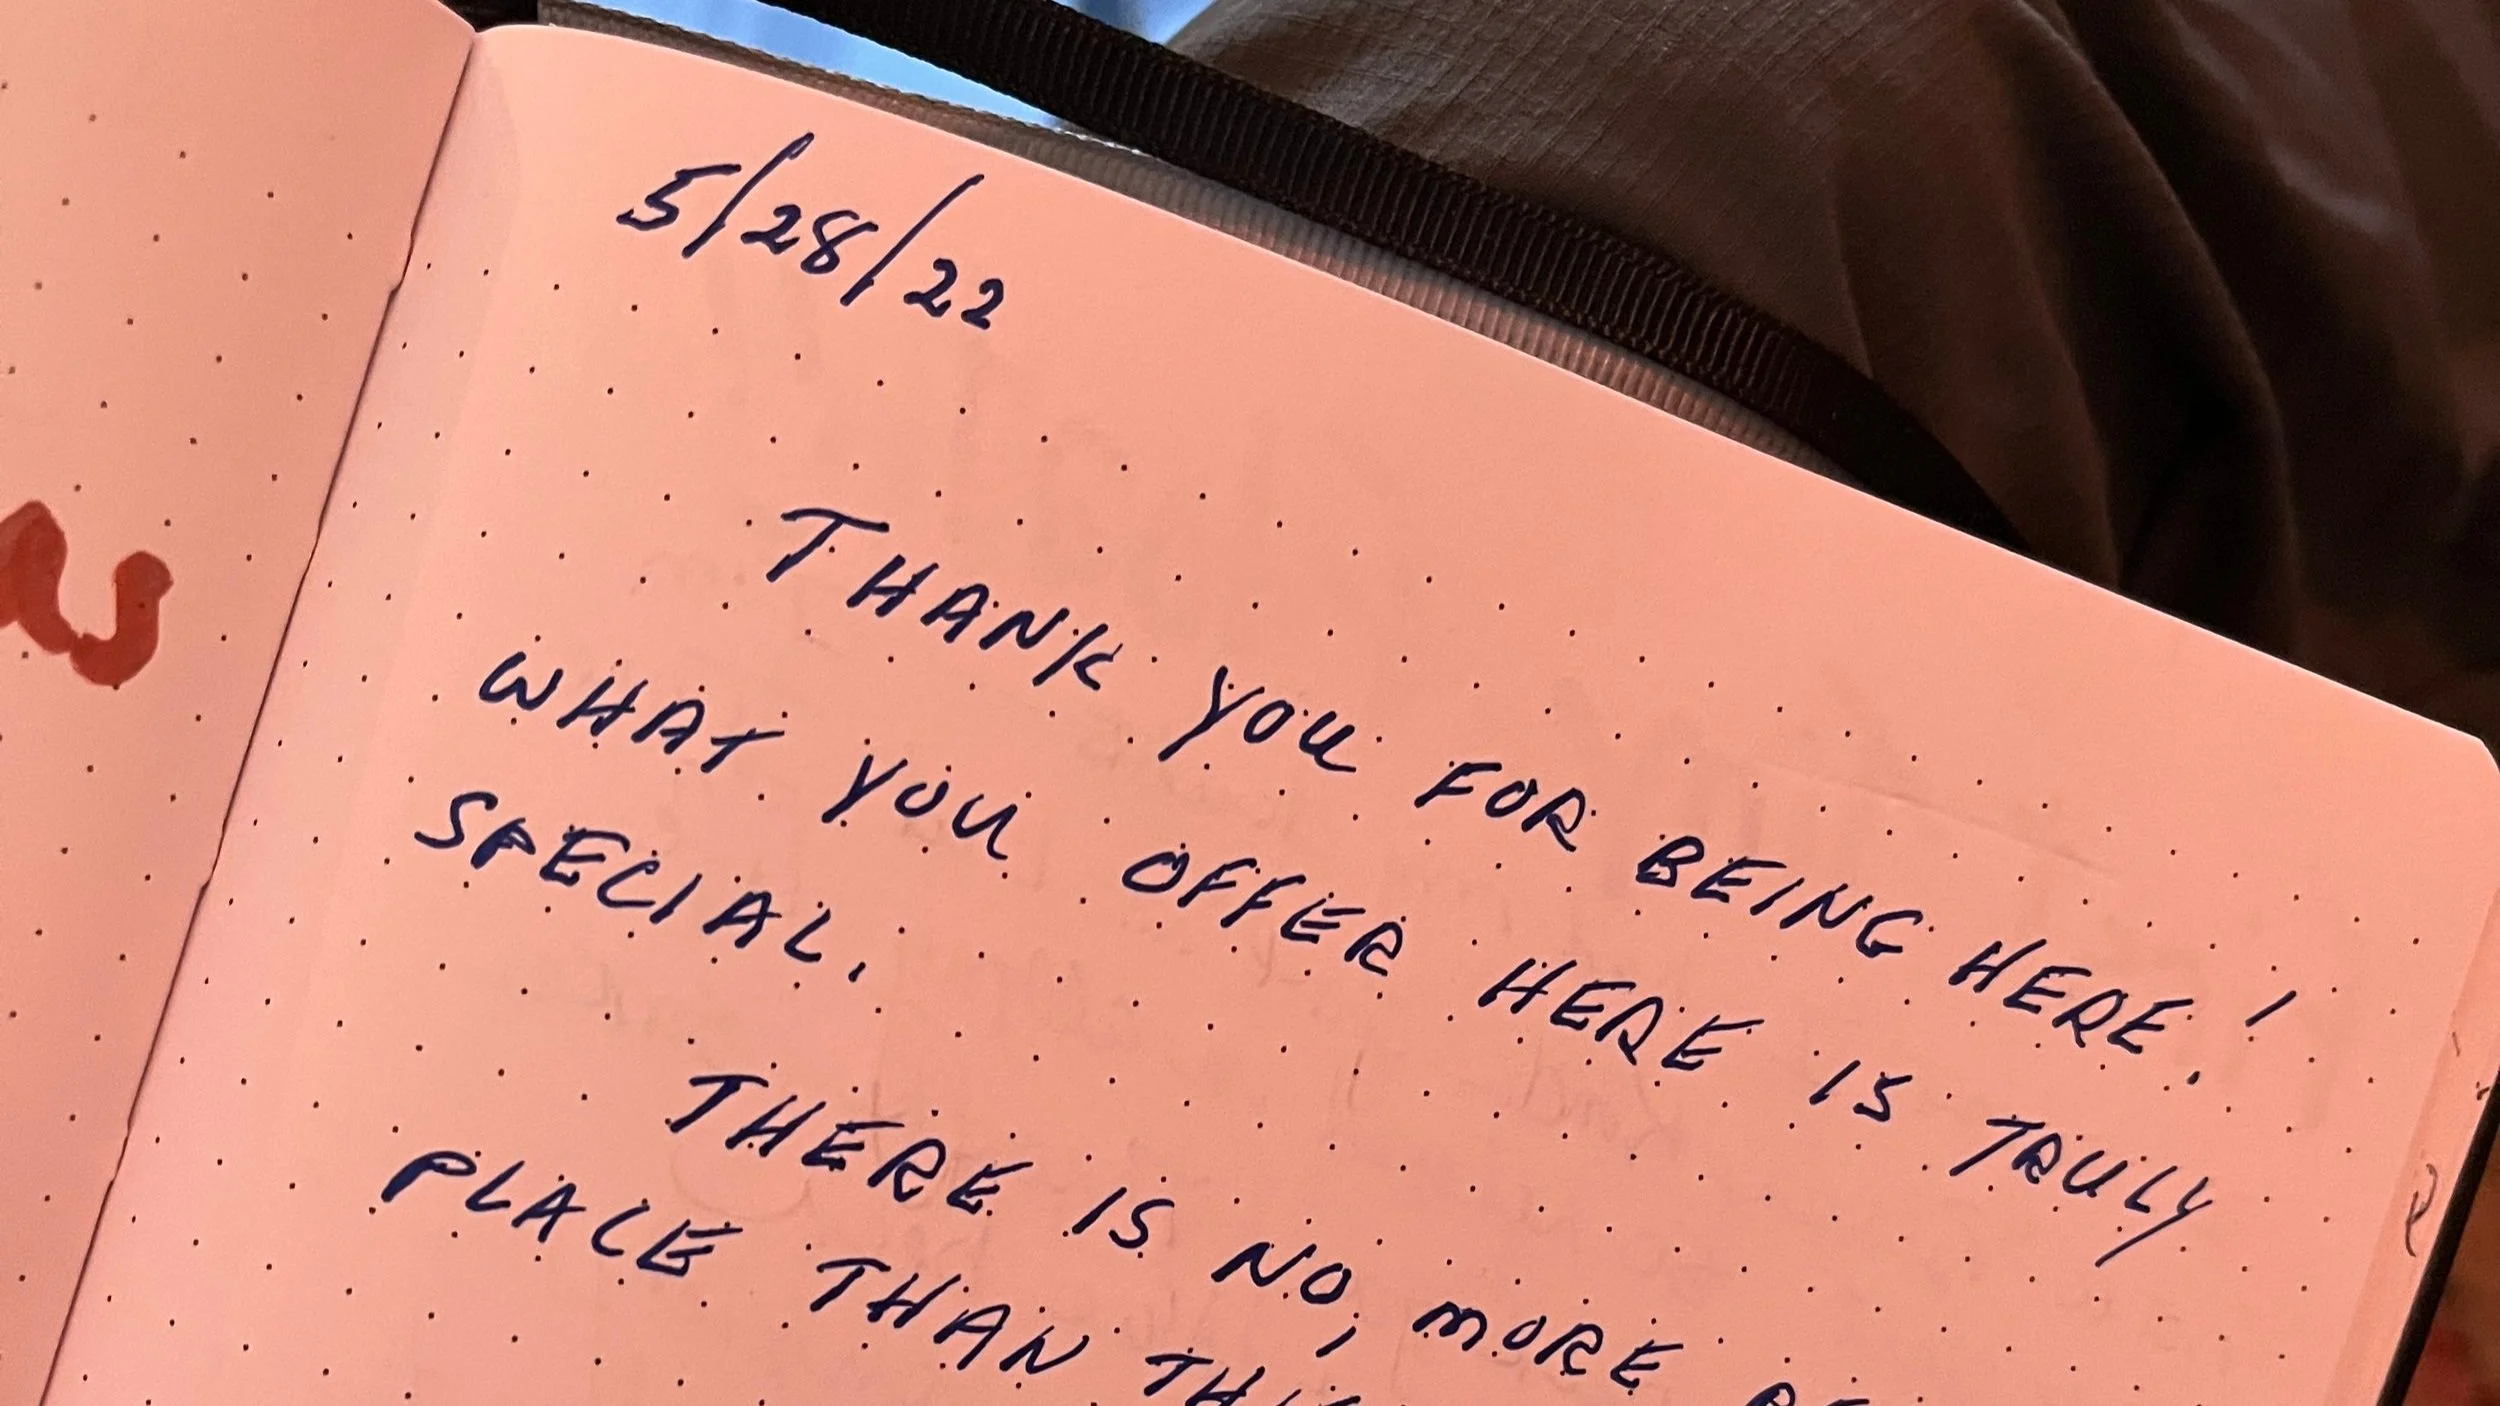 5/28/22
THANK YOU FOR BEING HERE!
WHAT YOU OFFER HERE IS TRULY
SPECIAL.
THERE IS NO, MORE
PLACE THAN